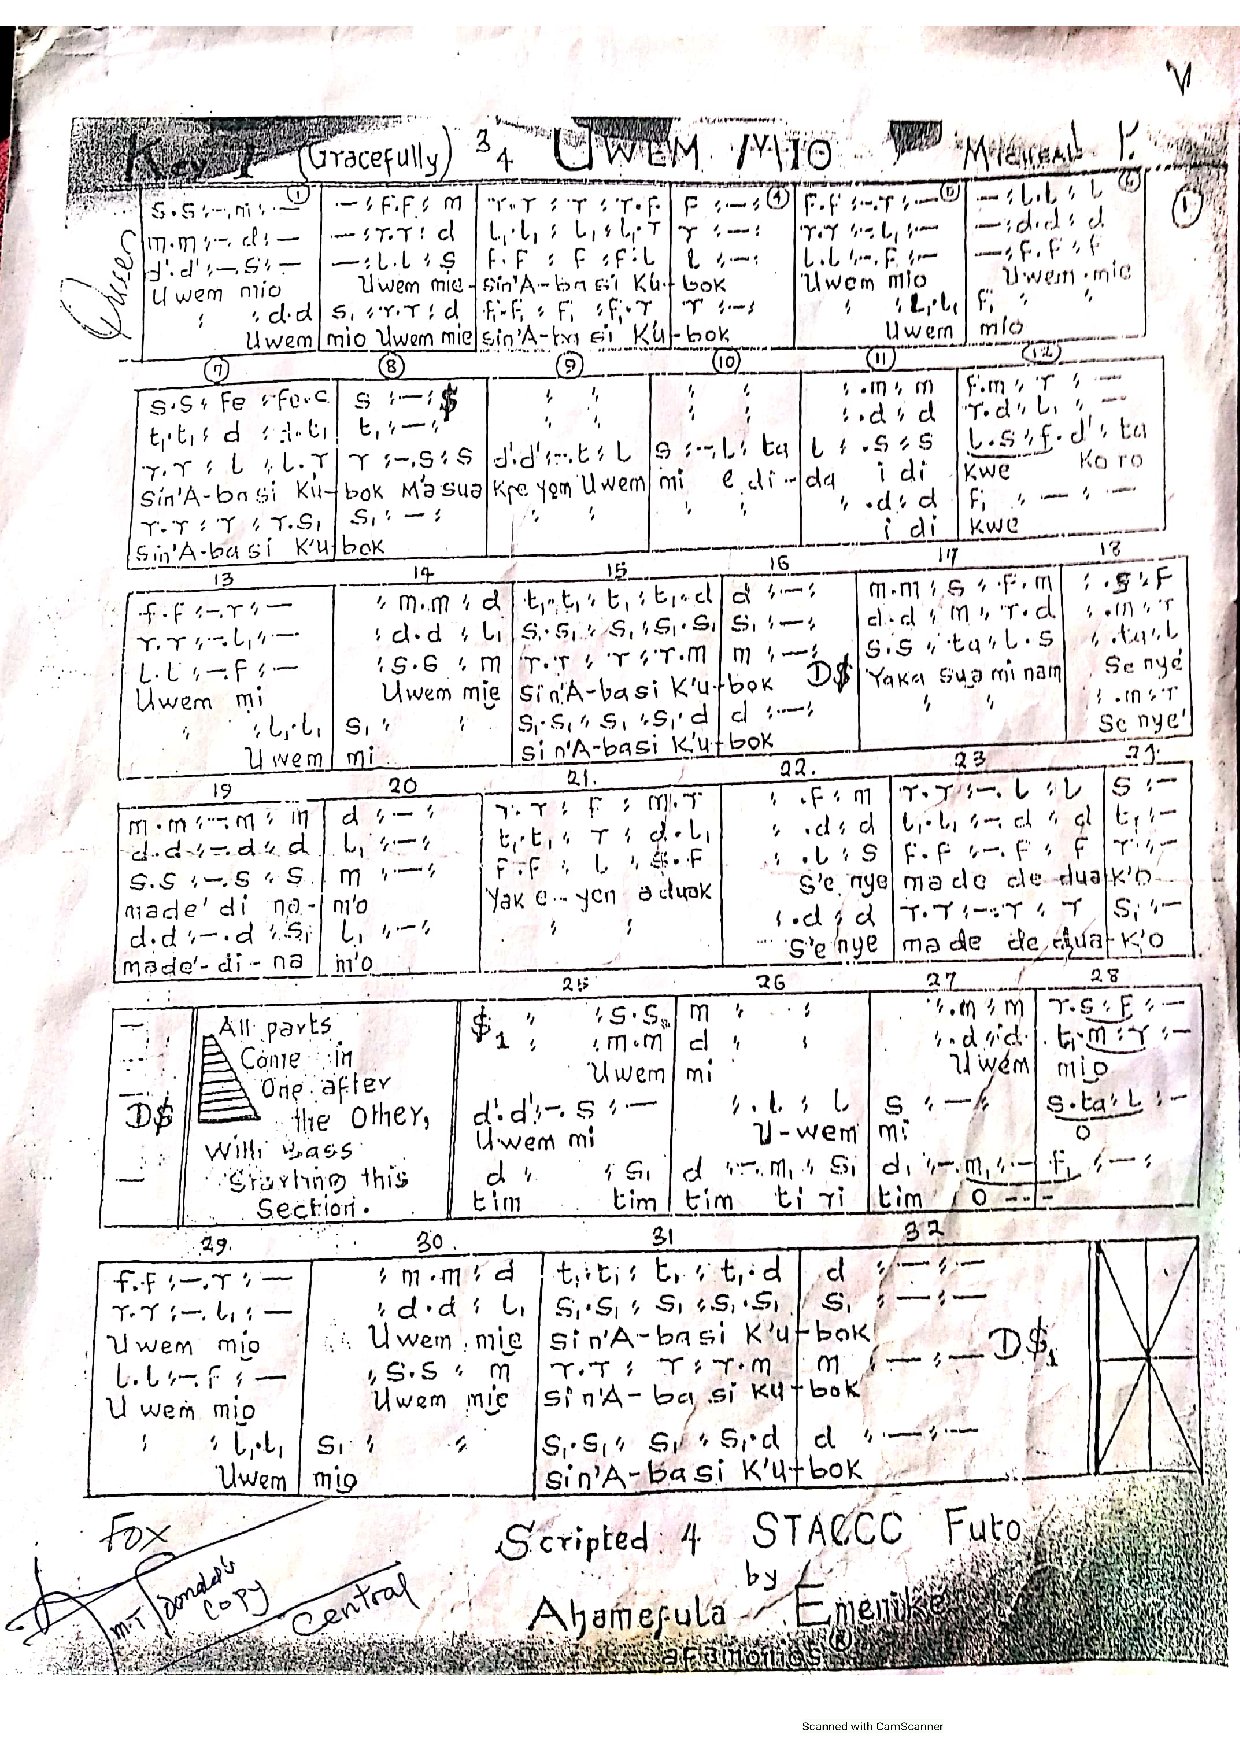 (Gracefully) 3/4 UWEM MIO Micheal P.
1 4 5 6 1
s.s :-.m :- | - : f.f : m | r.r : r : r.f | f :- : | f.f :-.r :- | - : l.l : l
m.m :-. d :- | - : r.r : d | l₁.l₁ : l₁ : l₁.r | r :- : | r.r :-.l₁ :- | - : d.d : d
d'.d' :-.s :- | - : l.l : s | f.f : f : f.l | l :- : | l.l :-.f :- | - : f.f : f
Uwem mio | Uwem mie- | sin'A-ba si Ku- | bok | Uwem mio | Uwem mie
: : d.d | s₁ : r.r : d | f₁.f₁ : f₁ : f₁.r | r :- : | : : l₁.l₁ | f₁ : :
Uwem | mio Uwem mie | sin'A-ba si Ku- | bok | Uwem | mio
7 8 9 10 11 12
s.s : fe : fe.s | s :- : $ | : : | : : | : .m : m | f.m : r :-
t₁.t₁ : d : d.t₁ | t₁ :- : | : : | : : | : .d : d | r.d : l₁ :-
r.r : l : l.r | r :-.s : s | d'.d' :-.t : l | s :-.l : ta | l : .s : s | l.s : f.d' : ta
sin'A-ba si Ku- | bok M'a sua | Kpe yem Uwem | mi e di-- | da i di | Kwe Ko ro
r.r : r : r.s₁ | s₁ :- : | : : | : : | : .d : d | f₁ :- :-
sin'A-ba si K'u- | bok | i di | kwe
13 14 15 16 17 18
f.f :-.r :- | : m.m : d | t₁.t₁ : t₁ : t₁.d | d :- : | m.m : s : f.m | : .s : f
r.r :-.l₁ :- | : d.d : l₁ | s₁.s₁ : s₁ : s₁.s₁ | s₁ :- : | d.d : m : r.d | : .m : r
l.l :-.f :- | : s.s : m | r.r : r : r.m | m :- : D$ | s.s : ta : l.s | : .ta : l
Uwem mi | Uwem mie | sin'A-basi K'u- | bok | Yaka sua mi nam | Se nye'
: : l₁.l₁ | s₁ : : | s₁.s₁ : s₁ : s₁.d | d :- : | : : | : .m : r
Uwem | mi | sin'A-basi K'u- | bok | Se nye'
19 20 21. 22. 23
m.m :-.m : m | d :- : | r.r : f : m.r | : .f : m | r.r :-.l : l | s :-
d.d :-.d : d | l₁ :- : | t₁.t₁ : r : d.l₁ | : .d : d | l₁.l₁ :-.d : d | t₁ :-
s.s :-.s : s | m :- : | f.f : l : s.f | : .l : s | f.f :-.f : f | r :-
made' di na- | m'o | Yak e-- yen aduok | S'e nye | ma de de dua- | k'o
d.d :-.d : s₁ | l₁ :- : | : : | : .d : d | r.r :-.r : r | s₁ :-
made'-di-na | m'o | S'e nye | ma de de dua- | K'o
25 26 27 28
D$ All parts
Come in
One after
the other,
With Bass
Starting this
Section.
$₁ : : s.s | m : : | : .m : m | r.s : f :-
: : m.m | d : : | : .d : d | t₁.m : r :-
Uwem | mi | Uwem | mio
d'.d' :-.s :- | : .l : l | s :- : | s.ta : l :-
Uwem mi | U-wem | mi | o
d : : s₁ | d :-.m₁ : s₁ | d₁ :-.m₁ :- | f₁ :- :
tim tim | tim ti ri | tim o---
29. 30. 31 32
f.f :-.r :- | : m.m : d | t₁.t₁ : t₁ : t₁.d | d :- :-
r.r :-.l₁ :- | : d.d : l₁ | s₁.s₁ : s₁ : s₁.s₁ | s₁ :- :-
Uwem mio | Uwem mie | sin'A-basi K'u- | bok D$₁
l.l :-.f :- | : s.s : m | r.r : r : r.m | m :- :-
Uwem mio | Uwem mie | sin'A-ba si Ku- | bok
: : l₁.l₁ | s₁ : : | s₁.s₁ : s₁ : s₁.d | d :- :-
Uwem | mio | sin'A-ba si K'u- | bok
FOX
Scripted 4 STACCC Futo
by
Ahamefula Emenike
M.T Donald's copy
Central
Scanned with CamScanner